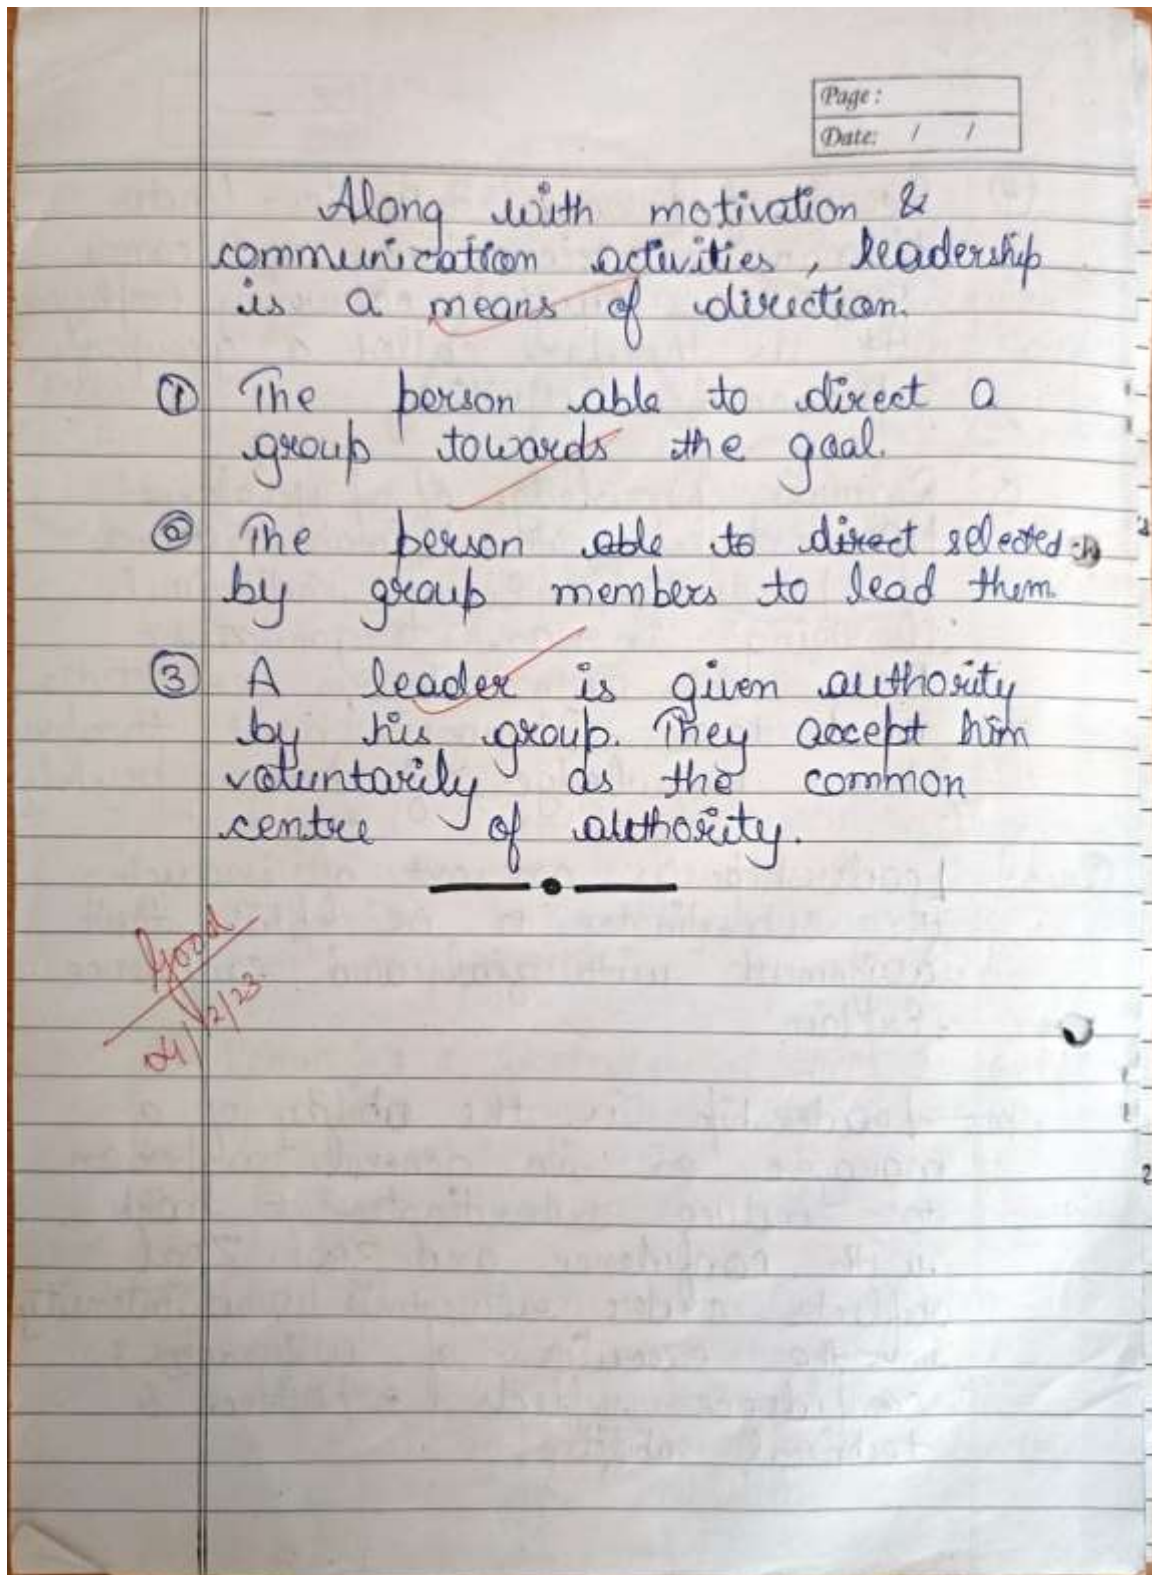 Page:
Date: / /
Along with motivation &
communication activities, leadership
is a means of direction.
① The person able to direct a
group towards the goal.
② The person able to direct selected
by group members to lead them
③ A leader is given authority
by his group. They accept him
voluntarily as the common
centre of authority.
Good
04/12/23